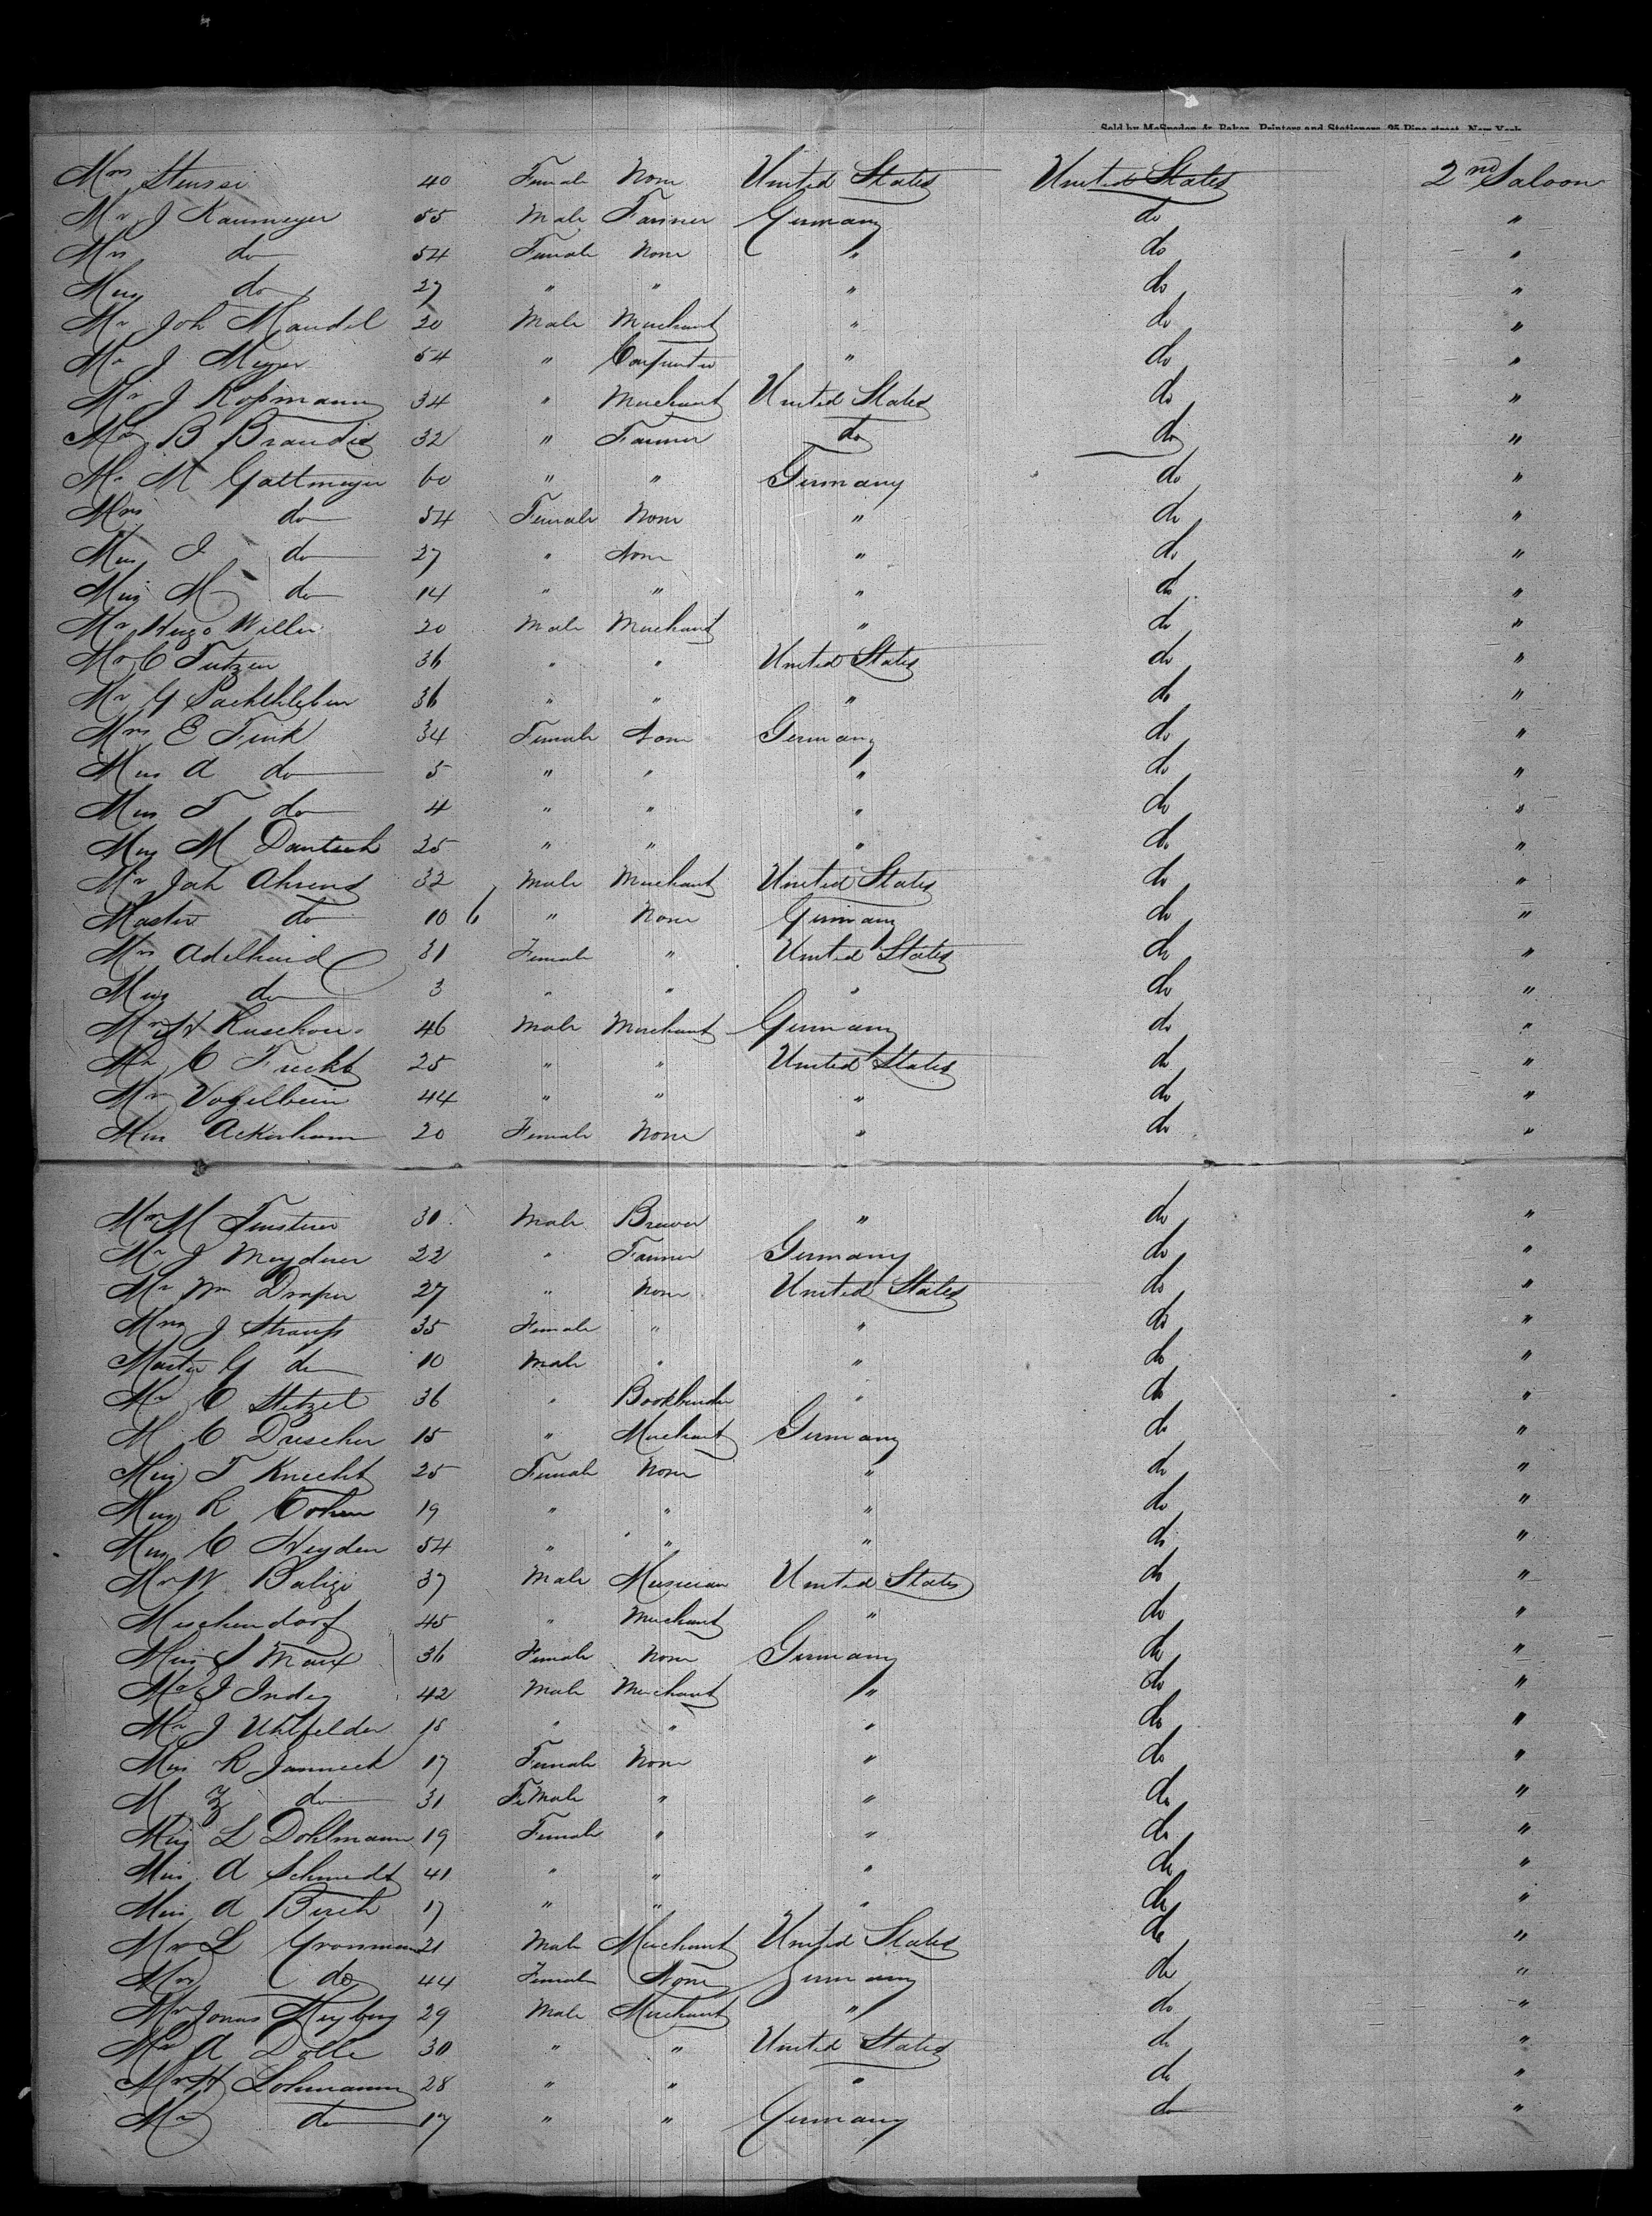 Sold by McSpedon & Baker, Printers and Stationers, 25 Pine street, New York
Mrs Steussi 40 Female None United States United States 2nd Saloon
Mr J Kaumeyer 55 Male Farmer Germany do "
Mrs do 54 Female None " do "
Miss do 27 " " " do "
Mr Joh Mandel 20 Male Merchant " do "
Mr J Meyer 54 " Carpenter " do "
Mr J Roßmann 34 " Merchant United States do "
Mr B Brandis 32 " Farmer do do "
Mr M Gattmeyer 60 " " Germany do "
Mrs do 54 Female None " do "
Miss J do 27 " None " do "
Miss M do 14 " " " do "
Mr Hugo Weller 20 Male Merchant " do "
Mr C Tutzen 36 " " United States do "
Mr G 36 " " " do "
Mrs E Fink 34 Female None Germany do "
Miss A do 5 " " " do "
Miss T do 4 " " " do "
Miss M Dantsch 25 " " " do "
Mr Joh Ahrens 32 Male Merchant United States do "
Master do 10 6 " None Germany do "
Mrs Adelheid 31 Female " United States do "
Miss do 3 " " " do "
Mr H 46 Male Merchant Germany do "
Mr C Fucht 25 " " United States do "
Mr Vogelbein 44 " " " do "
Miss Ackerham 20 Female None " do "
Mr M Fensterer 30 Male Brewer " do "
Mr J Meyderer 22 " Farmer Germany do "
Mr Wm Draper 27 " None United States do "
Mrs J Strauß 35 Female " " do "
Master G do 10 Male " " do "
Mr C Stetzel 36 " Bookbinder " do "
M C Drescher 15 " Merchant Germany do "
Miss T Knecht 25 Female None " do "
Miss R Cohen 19 " " " do "
Miss C Heyden 54 " " " do "
Mr W Balizi 37 Male Musician United States do "
Meschendorf 45 " Merchant " do "
Miss S Marx 36 Female None Germany do "
Mr J Indig 42 Male Merchant " do "
Mr J Uhlfelder 18 " " " do "
Miss R Janneck 17 Female None " do "
M Z do 31 FeMale " " do "
Miss L Dohlmann 19 Female " " do "
Miss A Schmidt 41 " " " do "
Miss A Birch 17 " " " do "
Mr L Gronman 21 Male Merchant United States do "
Mrs do 44 Female None Germany do "
Mr Jonas Heyberg 29 Male Merchant " do "
Mr A Dolle 30 " " United States do "
Mr H Lohmann 28 " " " do "
Mr do 17 " " Germany do "